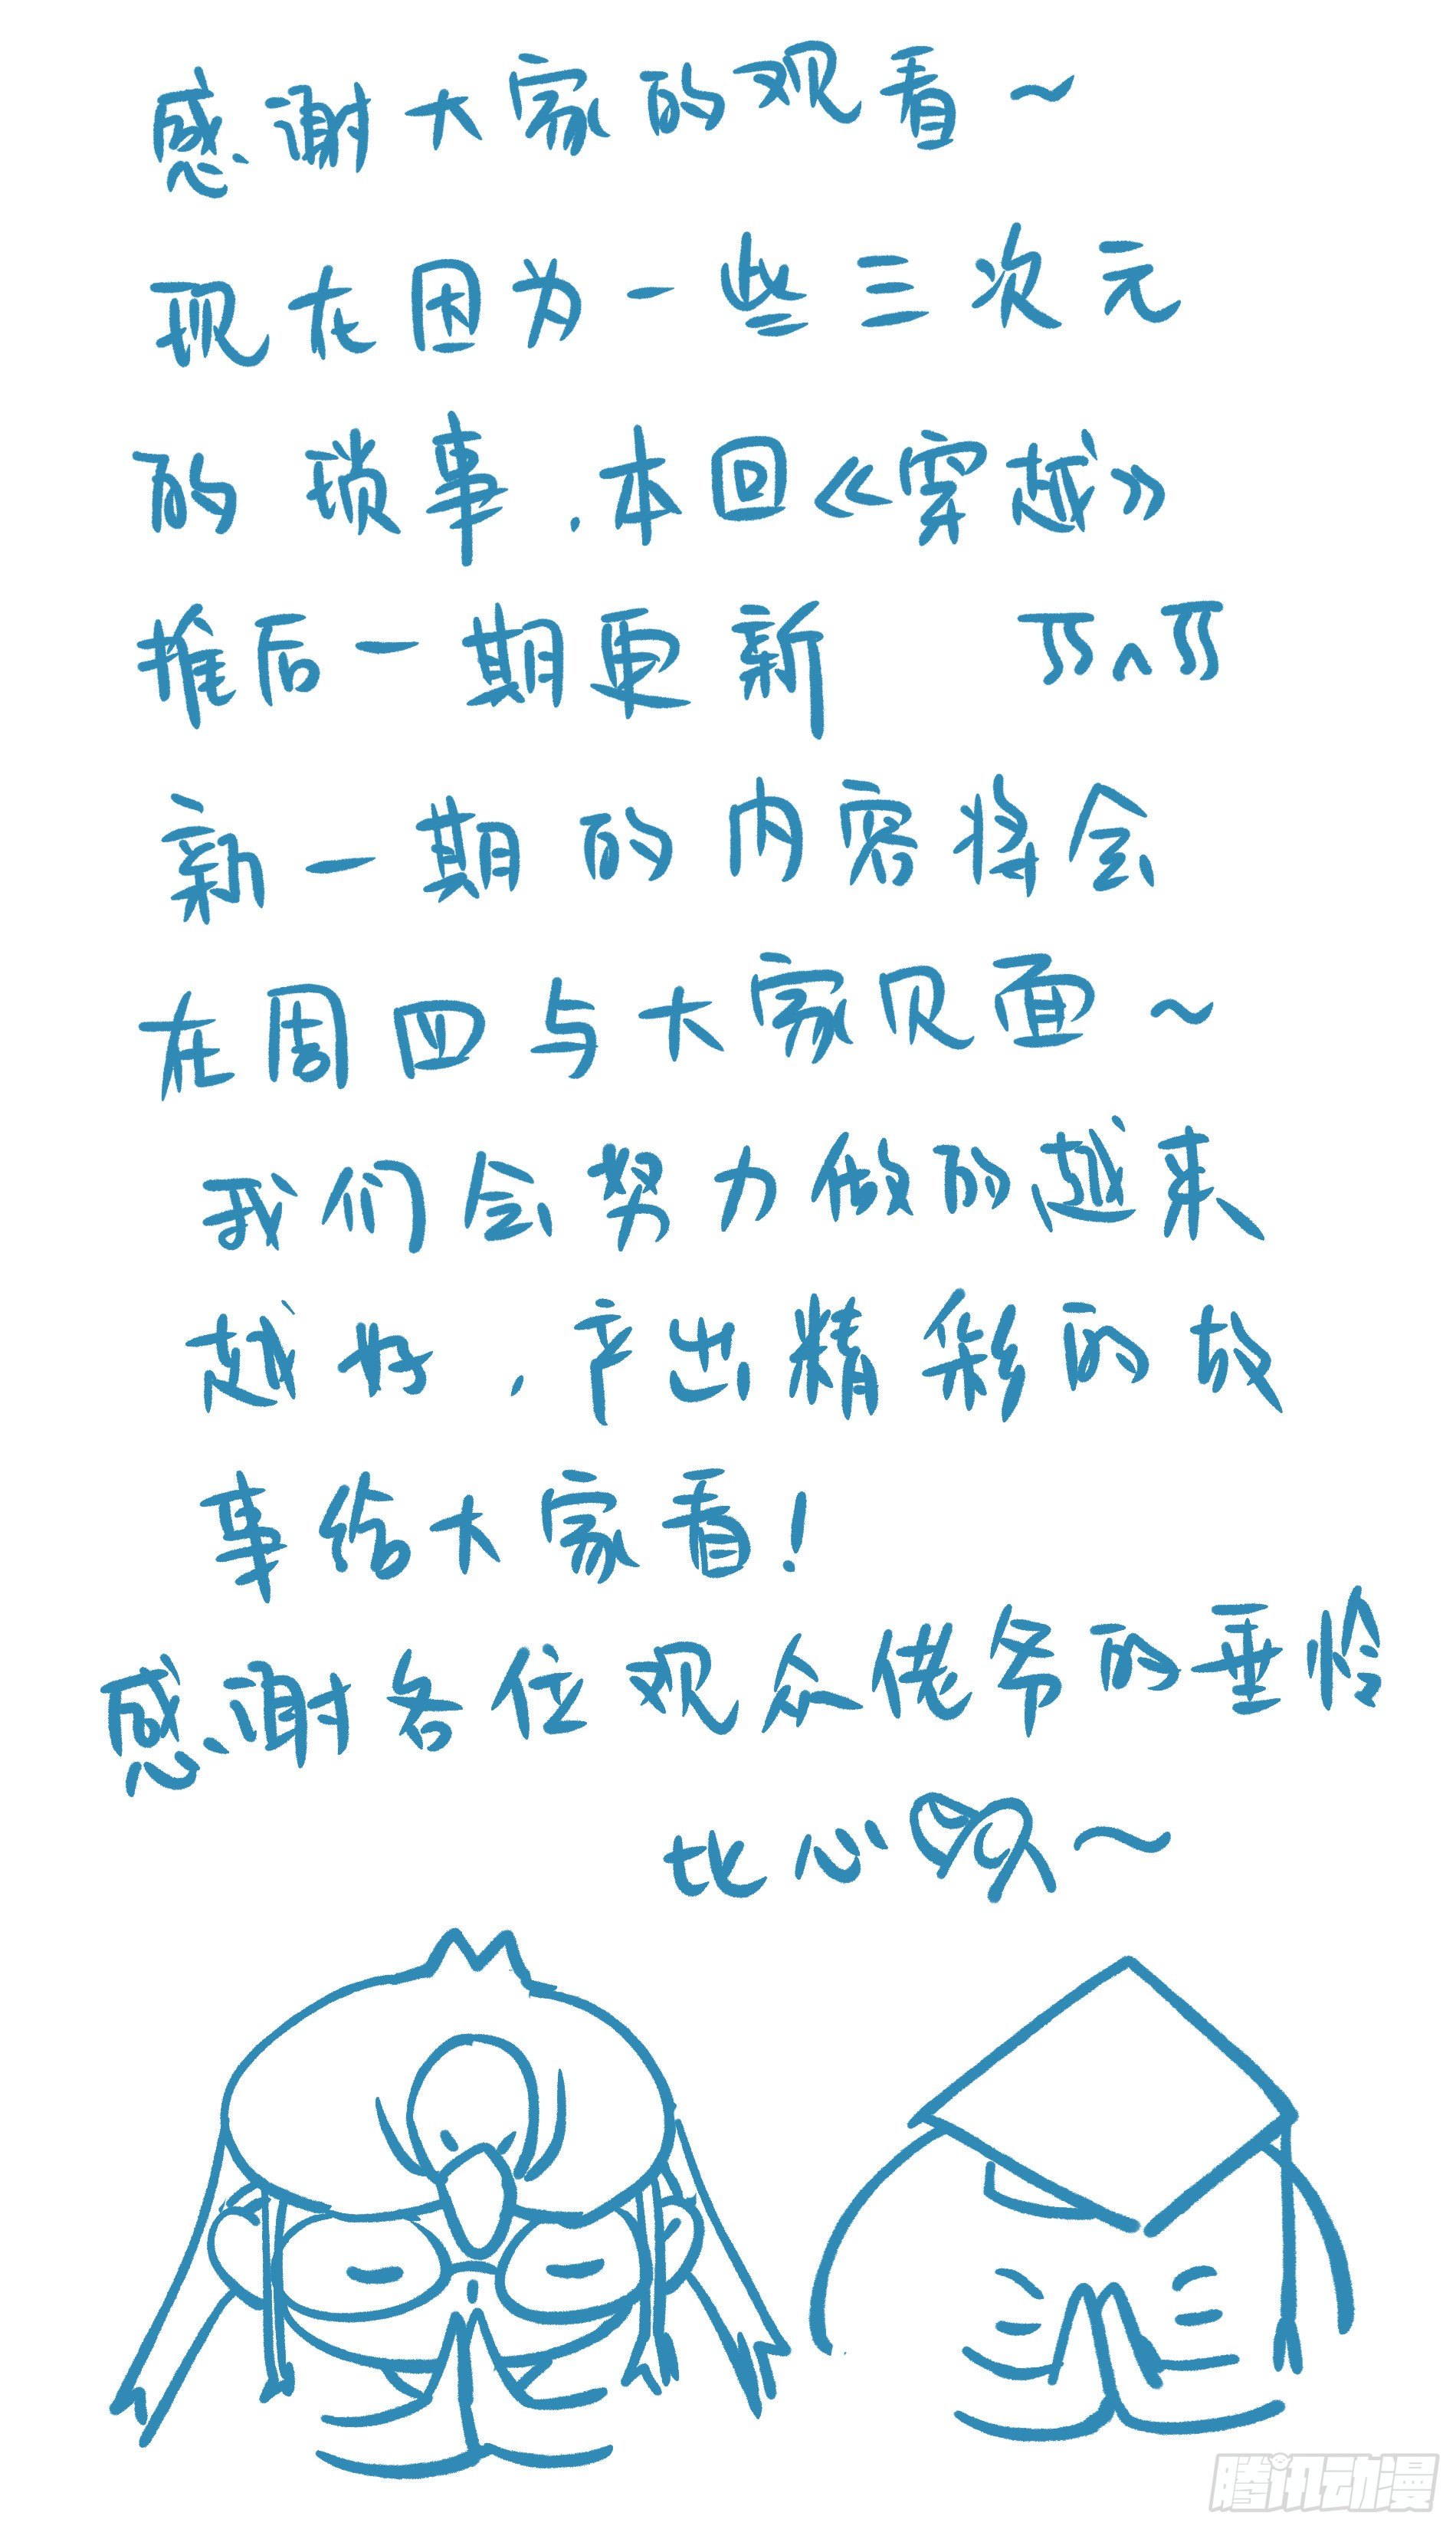 感谢大家的观看~
现在因为一些三次元
的琐事,本回《穿越》
推后一期更新 TTATT
新一期的内容将会
在周四与大家见面~
我们会努力做的越来
越好,产出精彩的故
事给大家看!
感谢各位观众佬爷的垂怜
比心~
腾讯动漫